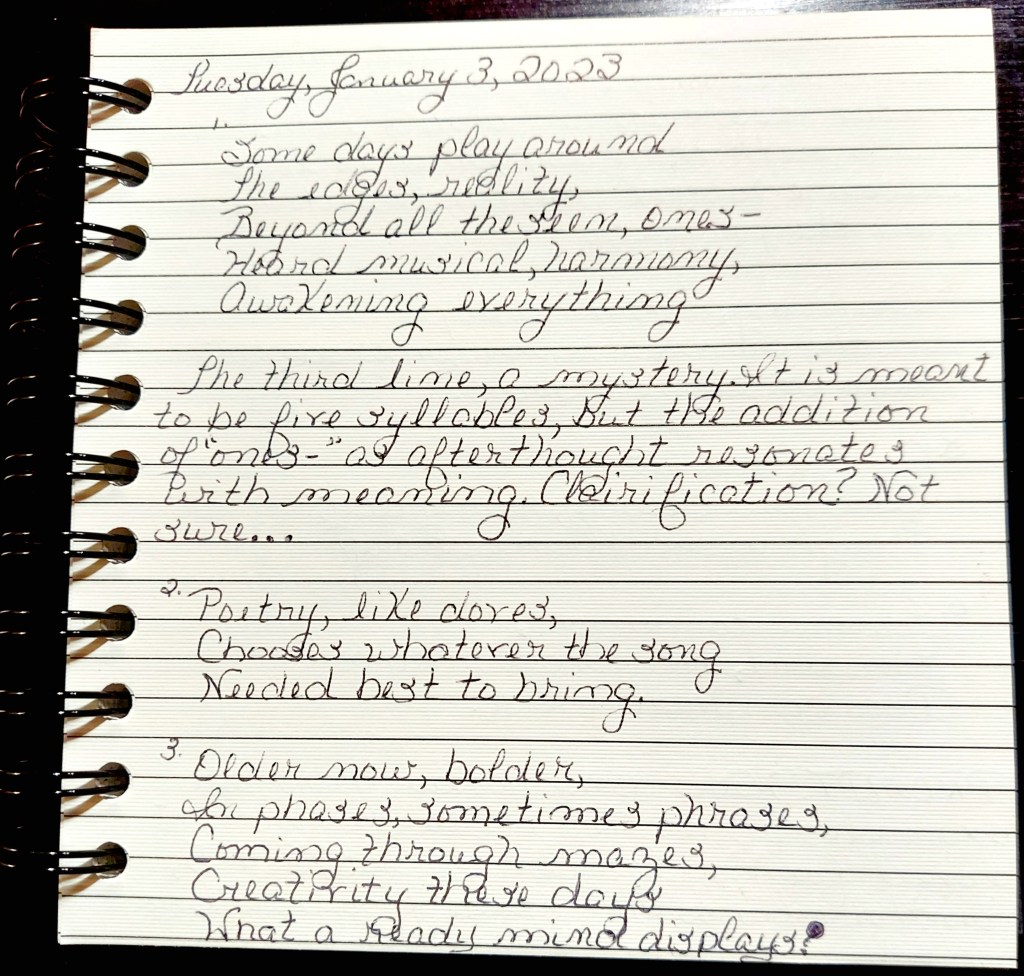 Tuesday, January 3, 2023
1.
Some days play around
The edges, reality,
Beyond all the seen, ones-
Heard musical, harmony,
Awakening everything
The third line, a mystery. It is meant
to be five syllables, But the addition
of "ones-" as afterthought resonates
With meaning. Clairification? Not
sure...
2. Poetry, like doves,
Chooses whatever the song
Needed best to bring.
3. Older now, bolder,
In phases, sometimes phrases,
Coming through mazes,
Creativity these days
What a ready mind displays?